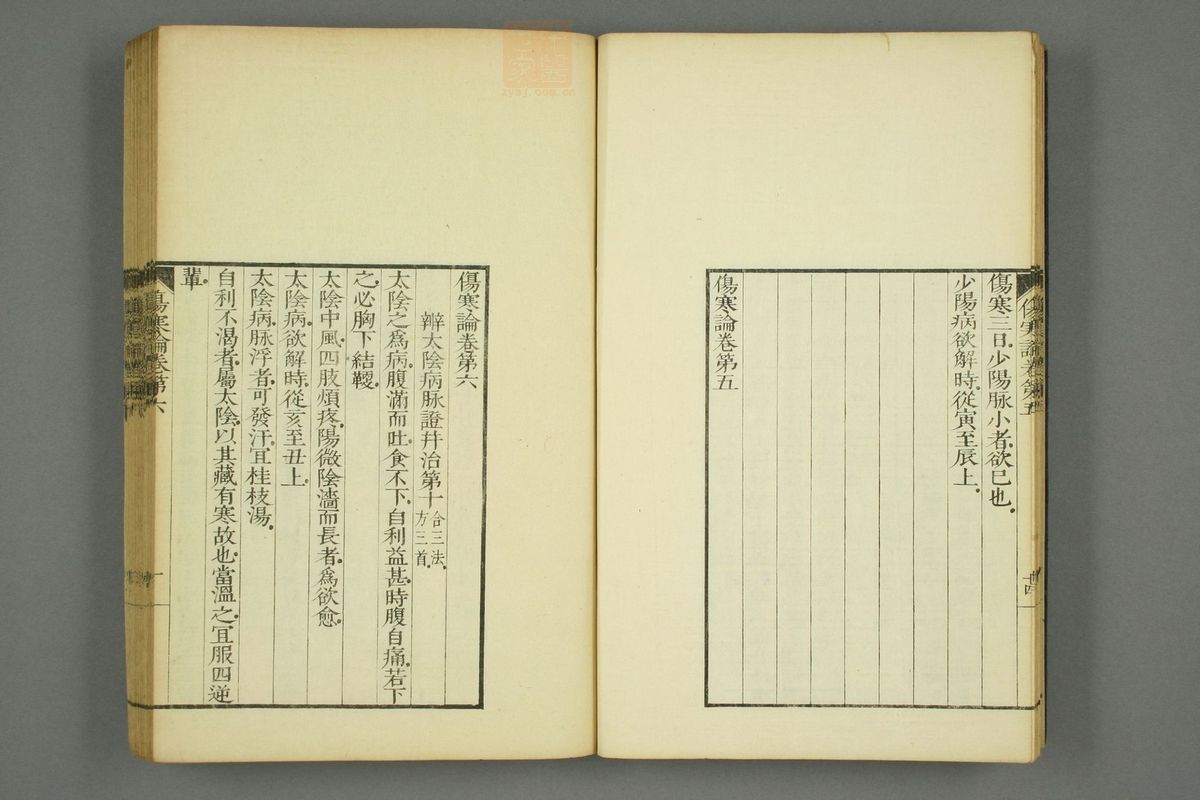 傷寒論卷第五
傷寒三日。少陽脉小者。欲已也。
少陽病欲解時。從寅至辰上。
傷寒論卷第五
廿四
傷寒論卷第六
辨太陰病脉證幷治第十 合三法。方三首。
太陰之爲病。腹滿而吐。食不下。自利益甚。時腹自痛。若下
之。必胸下結鞕。
太陰中風。四肢煩疼。陽微陰濇而長者。爲欲愈。
太陰病欲解時。從亥至丑上。
太陰病。脉浮者。可發汗。宜桂枝湯。
自利不渴者。屬太陰。以其藏有寒故也。當溫之。宜服四逆
輩。
傷寒論卷第六
一
zysj.com.cn